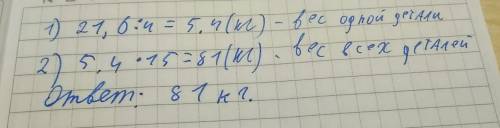 1) 21,6:4 = 5,4 (кг) - вес одной детали
2) 5,4 · 15 = 81 (кг) - вес всех деталей
Ответ: 81 кг.